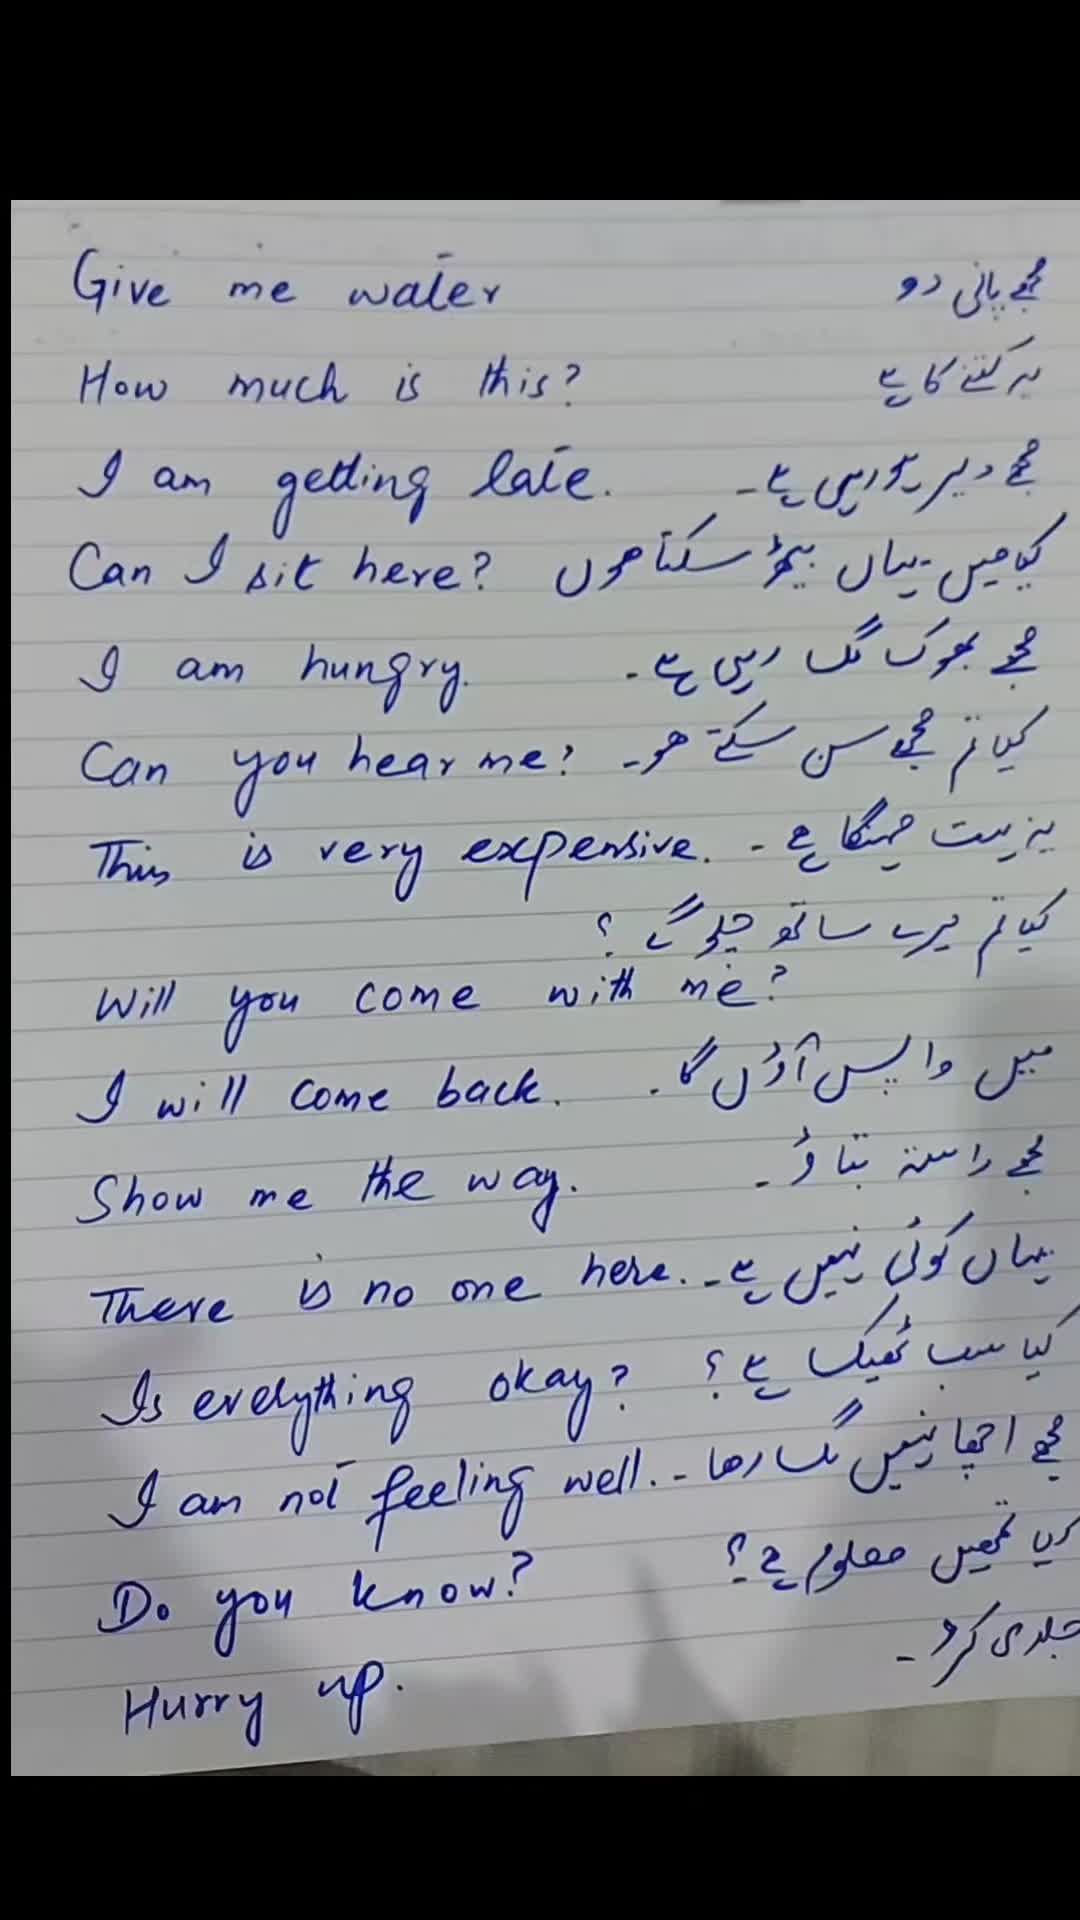 Give me water مجھے پانی دو
How much is this? یہ کتنے کا ہے
I am getting late. مجھے دیر ہو رہی ہے۔
Can I sit here? کیا میں یہاں بیٹھ سکتا ھوں
I am hungry. مجھے بھوک لگ رہی ہے۔
Can you hear me? کیا تم مجھے سن سکتے ھو۔
This is very expensive. یہ بہت مہنگا ہے۔
کیا تم میرے ساتھ چلو گے ؟
Will you come with me?
I will come back. میں واپس آؤں گا۔
Show me the way. مجھے راستہ بتاؤ۔
There is no one here. یہاں کوئی نہیں ہے۔
Is everything okay? کیا سب ٹھیک ہے؟
I am not feeling well. مجھے اچھا نہیں لگ رھا۔
Do you know? کیا تمھیں معلوم ہے؟
Hurry up. جلدی کرو۔